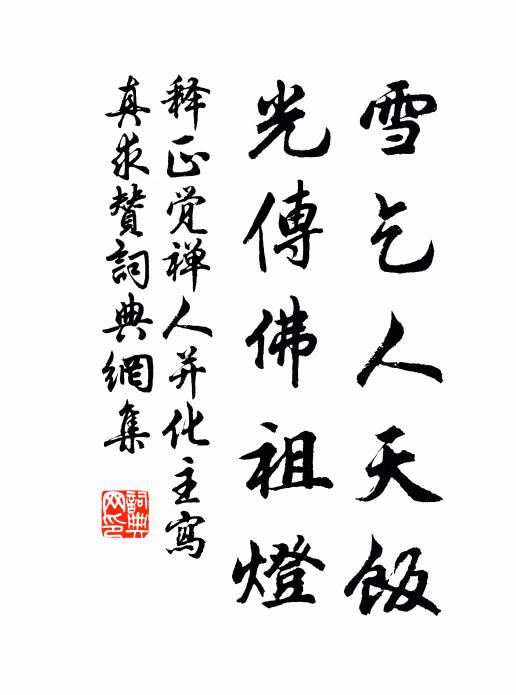 雪乞人天飯
光傳佛祖燈
释正觉禅人并化主寫
真求贊詞典網集
詞典網印